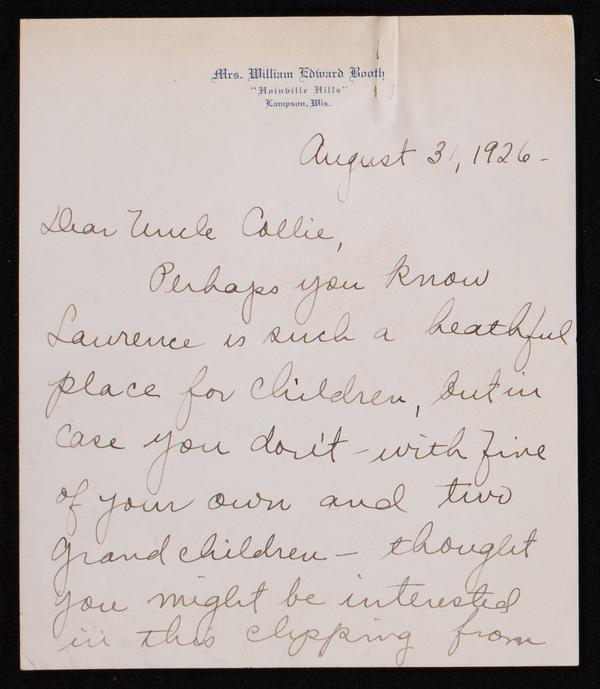 Mrs. William Edward Booth
"Hoinville Hills"
Lampson, Wis.
August 31, 1926-
Dear Uncle Collie,
Perhaps you know
Lawrence is such a heathful
place for children, but in
case you don't - with five
of your own and two
grandchildren - thought
you might be interested
in this clipping from